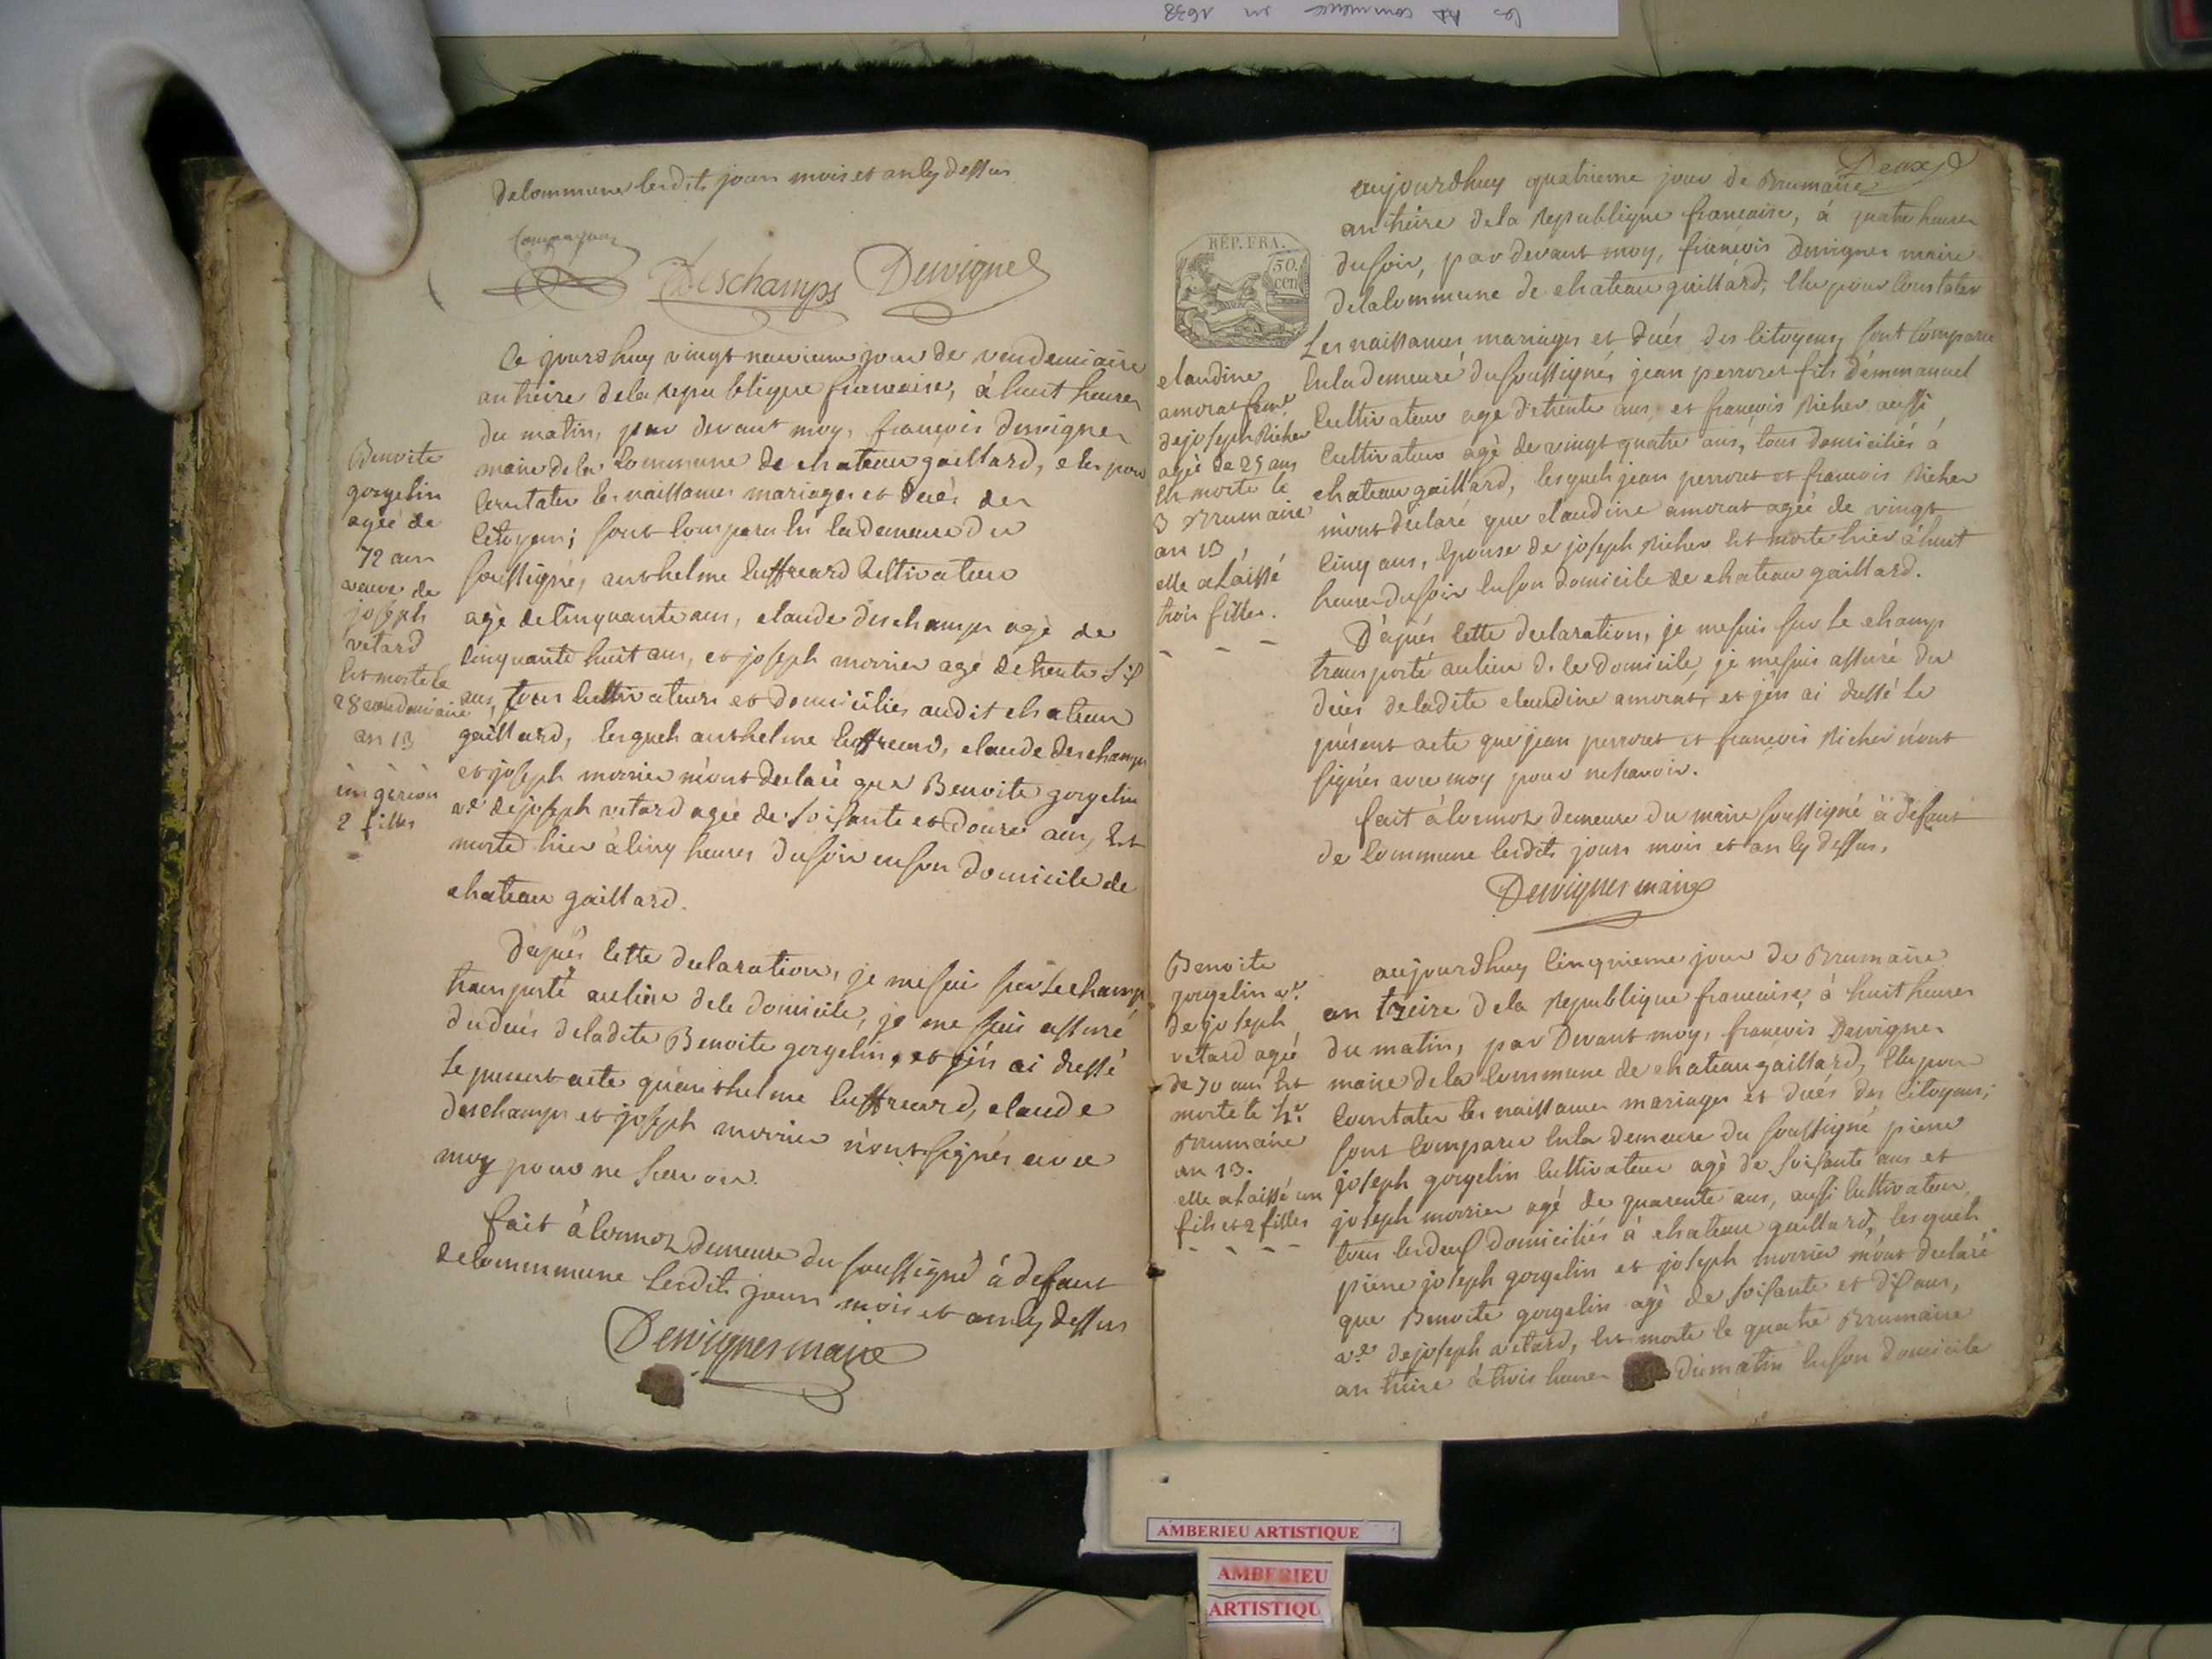 de commune lesdits jours mois et an cy dessus
Compagnon
Deschamps Dervignes
Ce jourdhuy vingt neuvieme jour de vendemiaire
an treize de la republique francaise, à huit heures
du matin, par devant moy, francois dervignes
maire de la commune de chateau gaillard, elu pour
constater les naissances mariages et décés des
citoyens; sont comparu en la demeure du
soussigné, anthelme cuffreard cultivateur
agé de cinquante ans, claude deschamps agé de
cinquante huit ans, et joseph morrier agé de trente six
ans, tous cultivateurs et domiciliés audit chateau
gaillard, lesquels anthelme cuffreard, claude deschamps
et joseph morrier m'ont declaré que Benoite gorgelin
ve. de joseph vetard agée de soisante et douze ans, est
morte hier à cinq heures du soir en son domicile de
chateau gaillard.
D'après cette declaration, je me suis sur le champ
transporté au lieu de ce domicile, je me suis assuré
du décés de ladite Benoite gorgelin, et j'en ai dressé
le present acte qu'anthelme cuffreard, claude
deschamps et joseph morrier n'ont signés avec
moy pour ne scavoir.
fait à cormoz demeure du soussigné à defaut
de commune lesdits jours mois et an cy dessus
Dervignes maire
Benoite
gorgelin
agée de
72 ans
veuve de
joseph
vetard
est morte le
28 vendemiaire
an 13
un gárcon
2 filles
Deux
aujourdhuy quatrieme jour de Brumaire
an treize de la republique francaise, à quatre heures
du soir, par devant moy, francois dervignes maire
de la commune de chateau gaillard, elu pour constater
Les naissances mariages et décés des citoyens sont comparu
en la demeure du soussigné, jean perroret fils d'emmanuel
cultivateur agé de trente ans, et francois Richer aussi
cultivateur agé de vingt quatre ans, tous domiciliés à
chateau gaillard, lesquels jean perroret et francois Richer
m'ont declaré que claudine amorat agée de vingt
cinq ans, epouse de joseph Richer est morte hier à huit
heures du soir en son domicile de chateau gaillard.
D'après cette declaration, je me suis sur le champ
transporté au lieu de ce domicile, je me suis assuré du
décés de ladite claudine amorat, et j'en ai dressé le
présent acte que jean perroret et francois Richer n'ont
signés avec moy pour ne scavoir.
fait à cormoz demeure du maire soussigné à defaut
de commune lesdits jours mois et an cy dessus.
Dervignes maire
RÉP. FRA.
50.
cen
claudine
amorat feme.
de joseph Richer
agée de 25 ans
est morte le
3 Brumaire
an 13,
elle a laissé
trois filles.
aujourdhuy cinquieme jour de Brumaire
an treize de la republique francaise, à huit heures
du matin, par devant moy, francois Dervignes
maire de la commune de chateau gaillard, elu pour
constater les naissances mariages et décés des citoyens;
sont comparu en la demeure du soussigné pierre
joseph gorgelin cultivateur agé de soisante ans et
joseph morrier agé de quarente ans, aussi cultivateur,
tous les deux domiciliés à chateau gaillard, lesquels
pierre joseph gorgelin et joseph morrier m'ont declaré
que Benoite gorgelin agé de soisante et dix ans,
ve. de joseph vetard, est morte le quatre Brumaire
an treize à trois heures du matin en son domicile
Benoite
gorgelin ve.
de joseph
vetard agée
de 70 ans est
morte le 4e.
Brumaire
an 13.
elle a laissé un
fils et 2 filles
AMBERIEU ARTISTIQUE
AMBERIEU
ARTISTIQU